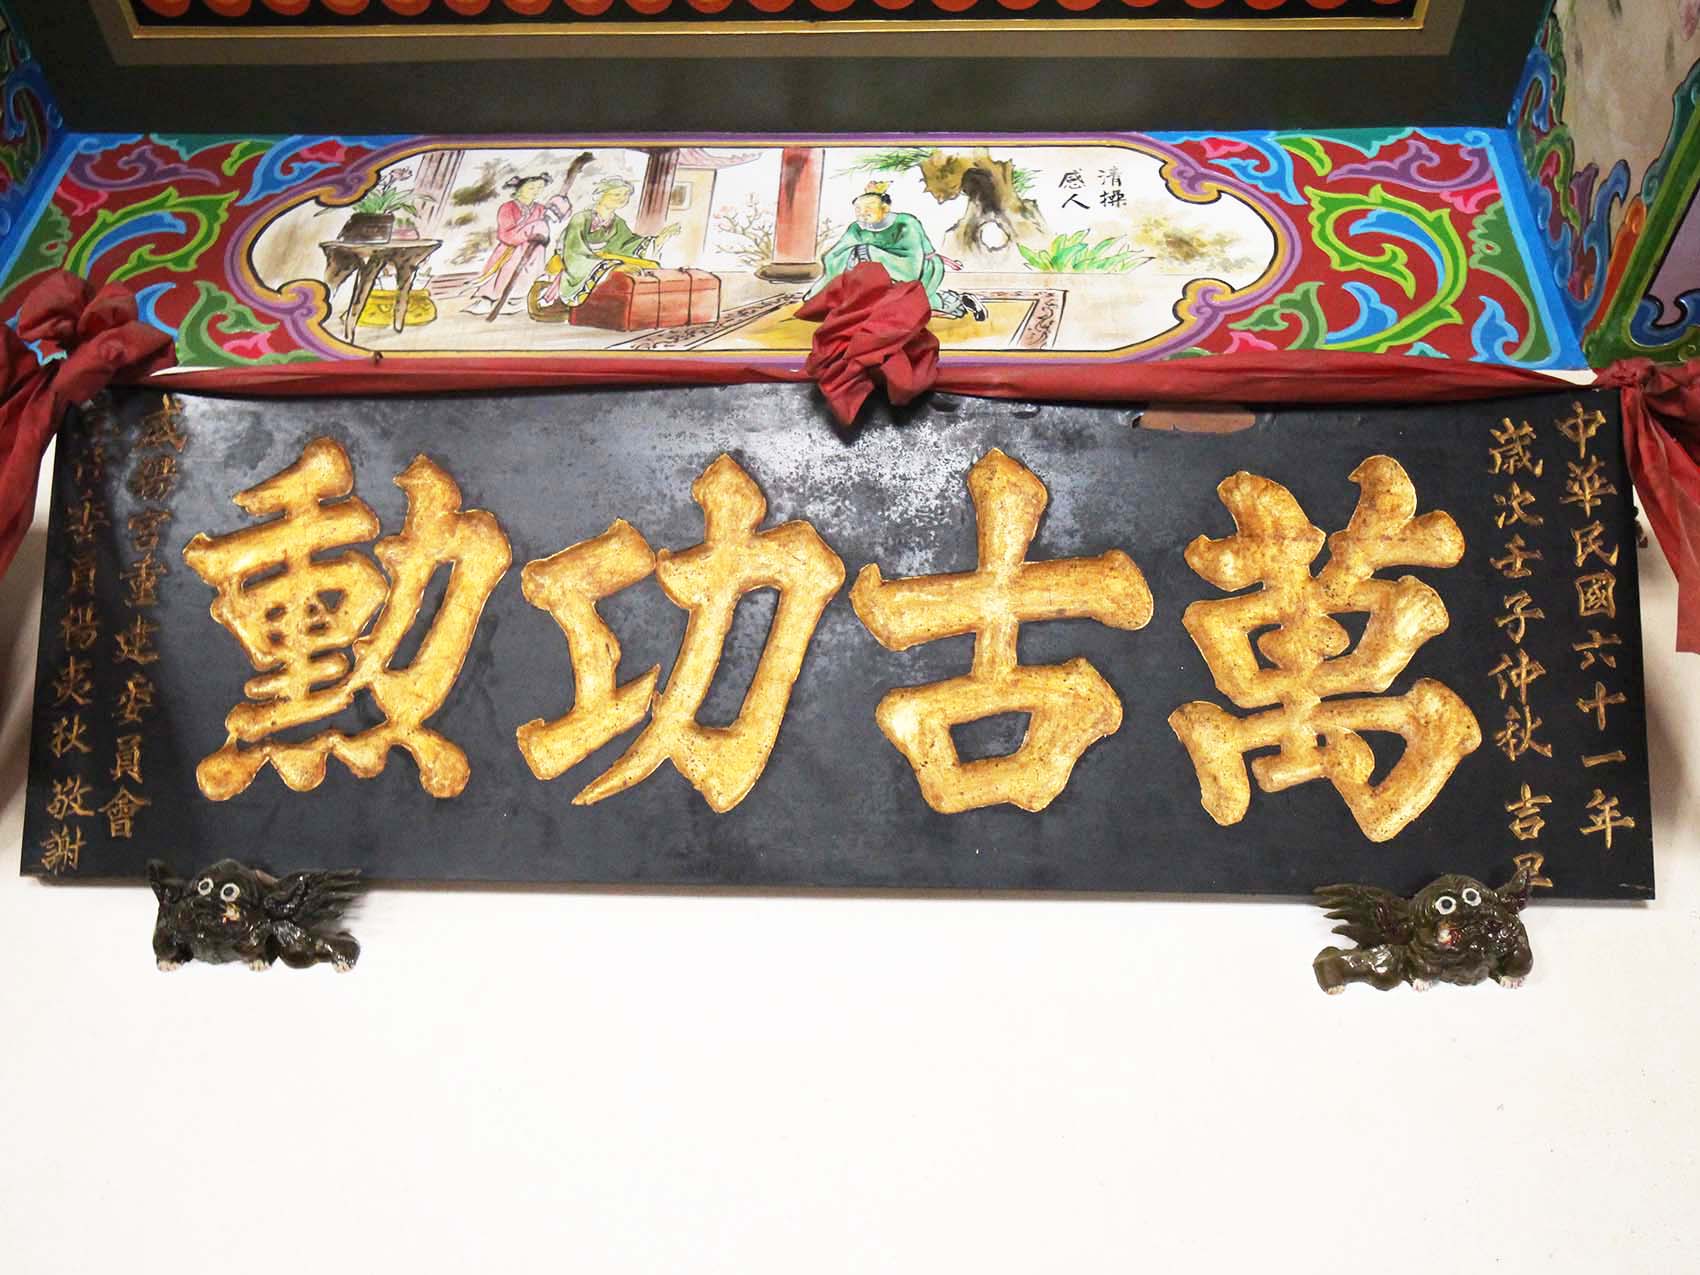 清操
感人
中華民國六十一年
歲次壬子仲秋 吉旦
萬古功勳
威勝宮重建委員會
委員楊夷狄 敬謝